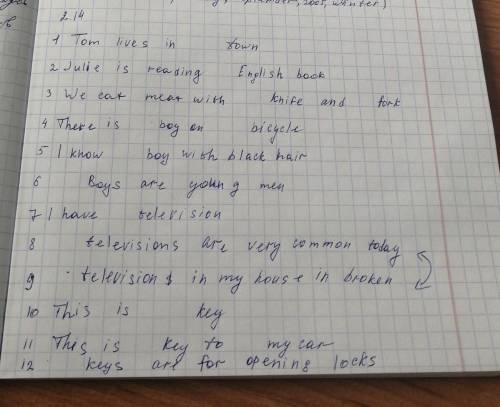 , 2005, winter)
2.14
1 Tom lives in town
2 Julie is reading English book
3 We eat meat with knife and fork
4 There is boy on bicycle
5 I know boy with black hair
6 Boys are young men
7 I have television
8 televisions are very common today
9 televisions in my house in broken
10 This is key
11 This is key to my car
12 keys are for opening locks